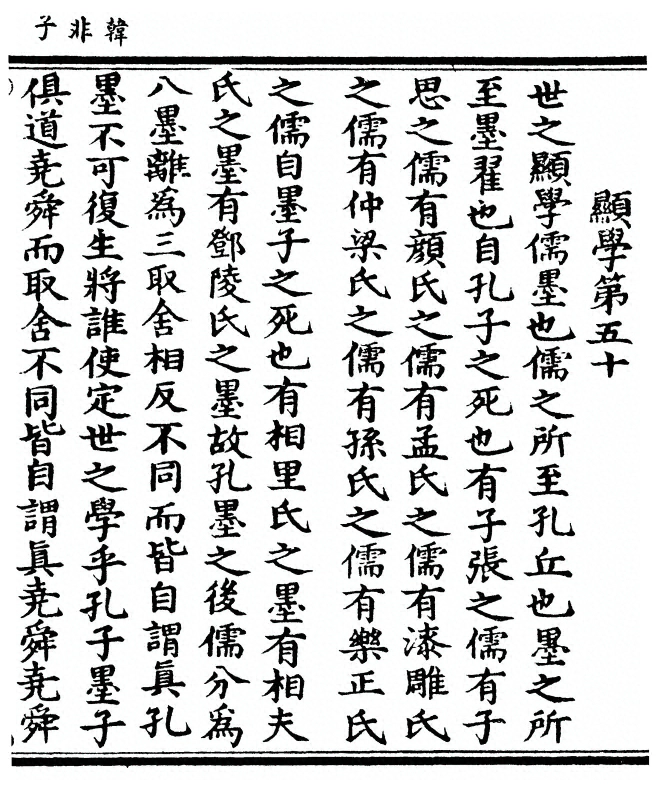 韓非子
顯學第五十
世之顯學儒墨也儒之所至孔丘也墨之所
至墨翟也自孔子之死也有子張之儒有子
思之儒有顏氏之儒有孟氏之儒有漆雕氏
之儒有仲梁氏之儒有孫氏之儒有樂正氏
之儒自墨子之死也有相里氏之墨有相夫
氏之墨有鄧陵氏之墨故孔墨之後儒分為
八墨離為三取舍相反不同而皆自謂真孔
墨不可復生將誰使定世之學乎孔子墨子
俱道堯舜而取舍不同皆自謂真堯舜堯舜